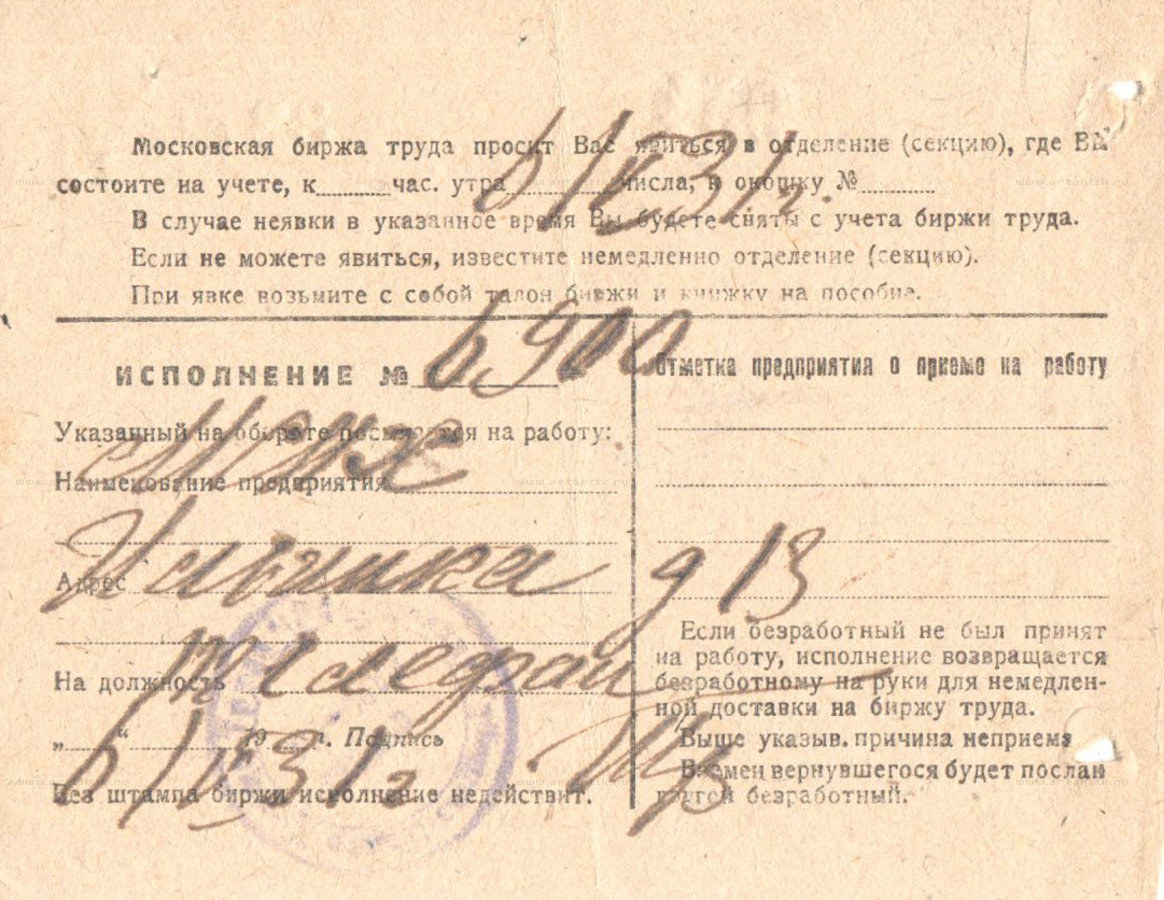 Московская биржа труда просит Вас явиться в отделение (секцию), где Вы
состоите на учете, к час. утра числа, к окошку №
В случае неявки в указанное время Вы будете сняты с учета биржи труда.
Если не можете явиться, известите немедленно отделение (секцию).
При явке возьмите с собой талон биржи и книжку на пособие.
ИСПОЛНЕНИЕ № 6900
Указанный на обороте посылается на работу:
Наименование предприятия
Адрес
На должность
„ “ 19 г. Подпись
Без штампа биржи исполнение недействит.
Отметка предприятия о приеме на работу
д 13
Если безработный не был принят
на работу, исполнение возвращается
безработному на руки для немедлен-
ной доставки на биржу труда.
Выше указыв. причина неприема
Взамен вернувшегося будет послан
другой безработный.